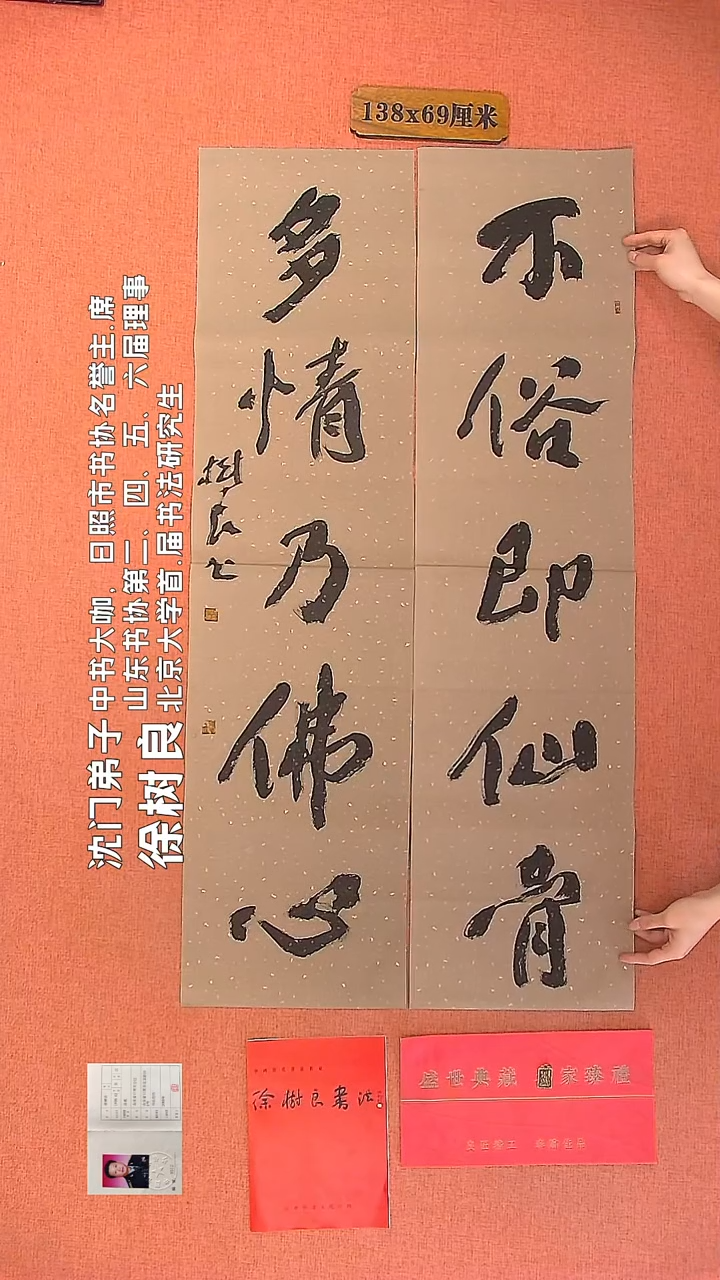 138x69厘米
不俗即仙骨
多情乃佛心
树良书
沈门弟子
徐树良
中书大咖，日照市书协名誉主.席
山东书协第三、四、五、六届理事
北京大学首.届书法研究生
徐树良书法
盛世典藏 国家臻礼